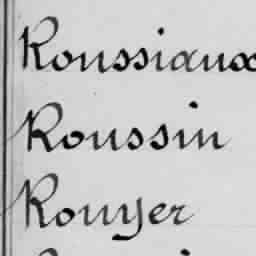 Roussiaux
Roussin
Rouyer